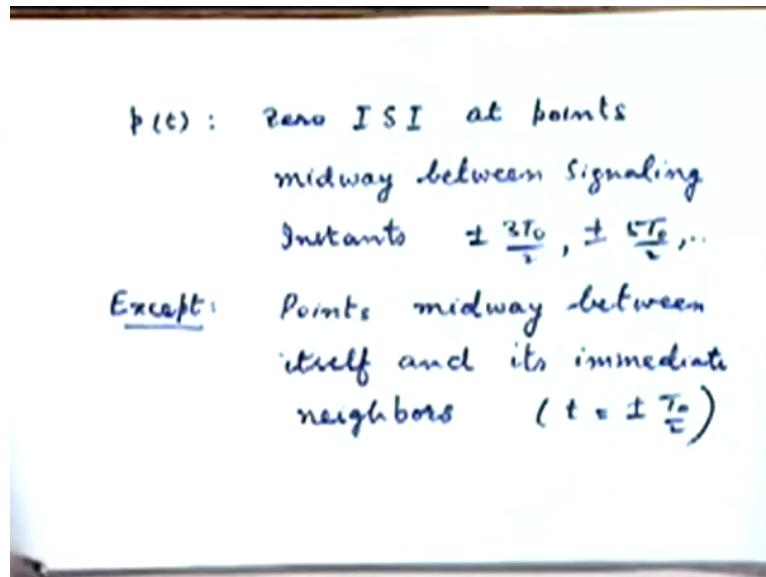 p(t) : Zero ISI at points
midway between Signaling
Instants ± 3T₀/2, ± 5T₀/2,..
Except: Points midway between
itself and its immediate
neighbors (t = ± T₀/2)